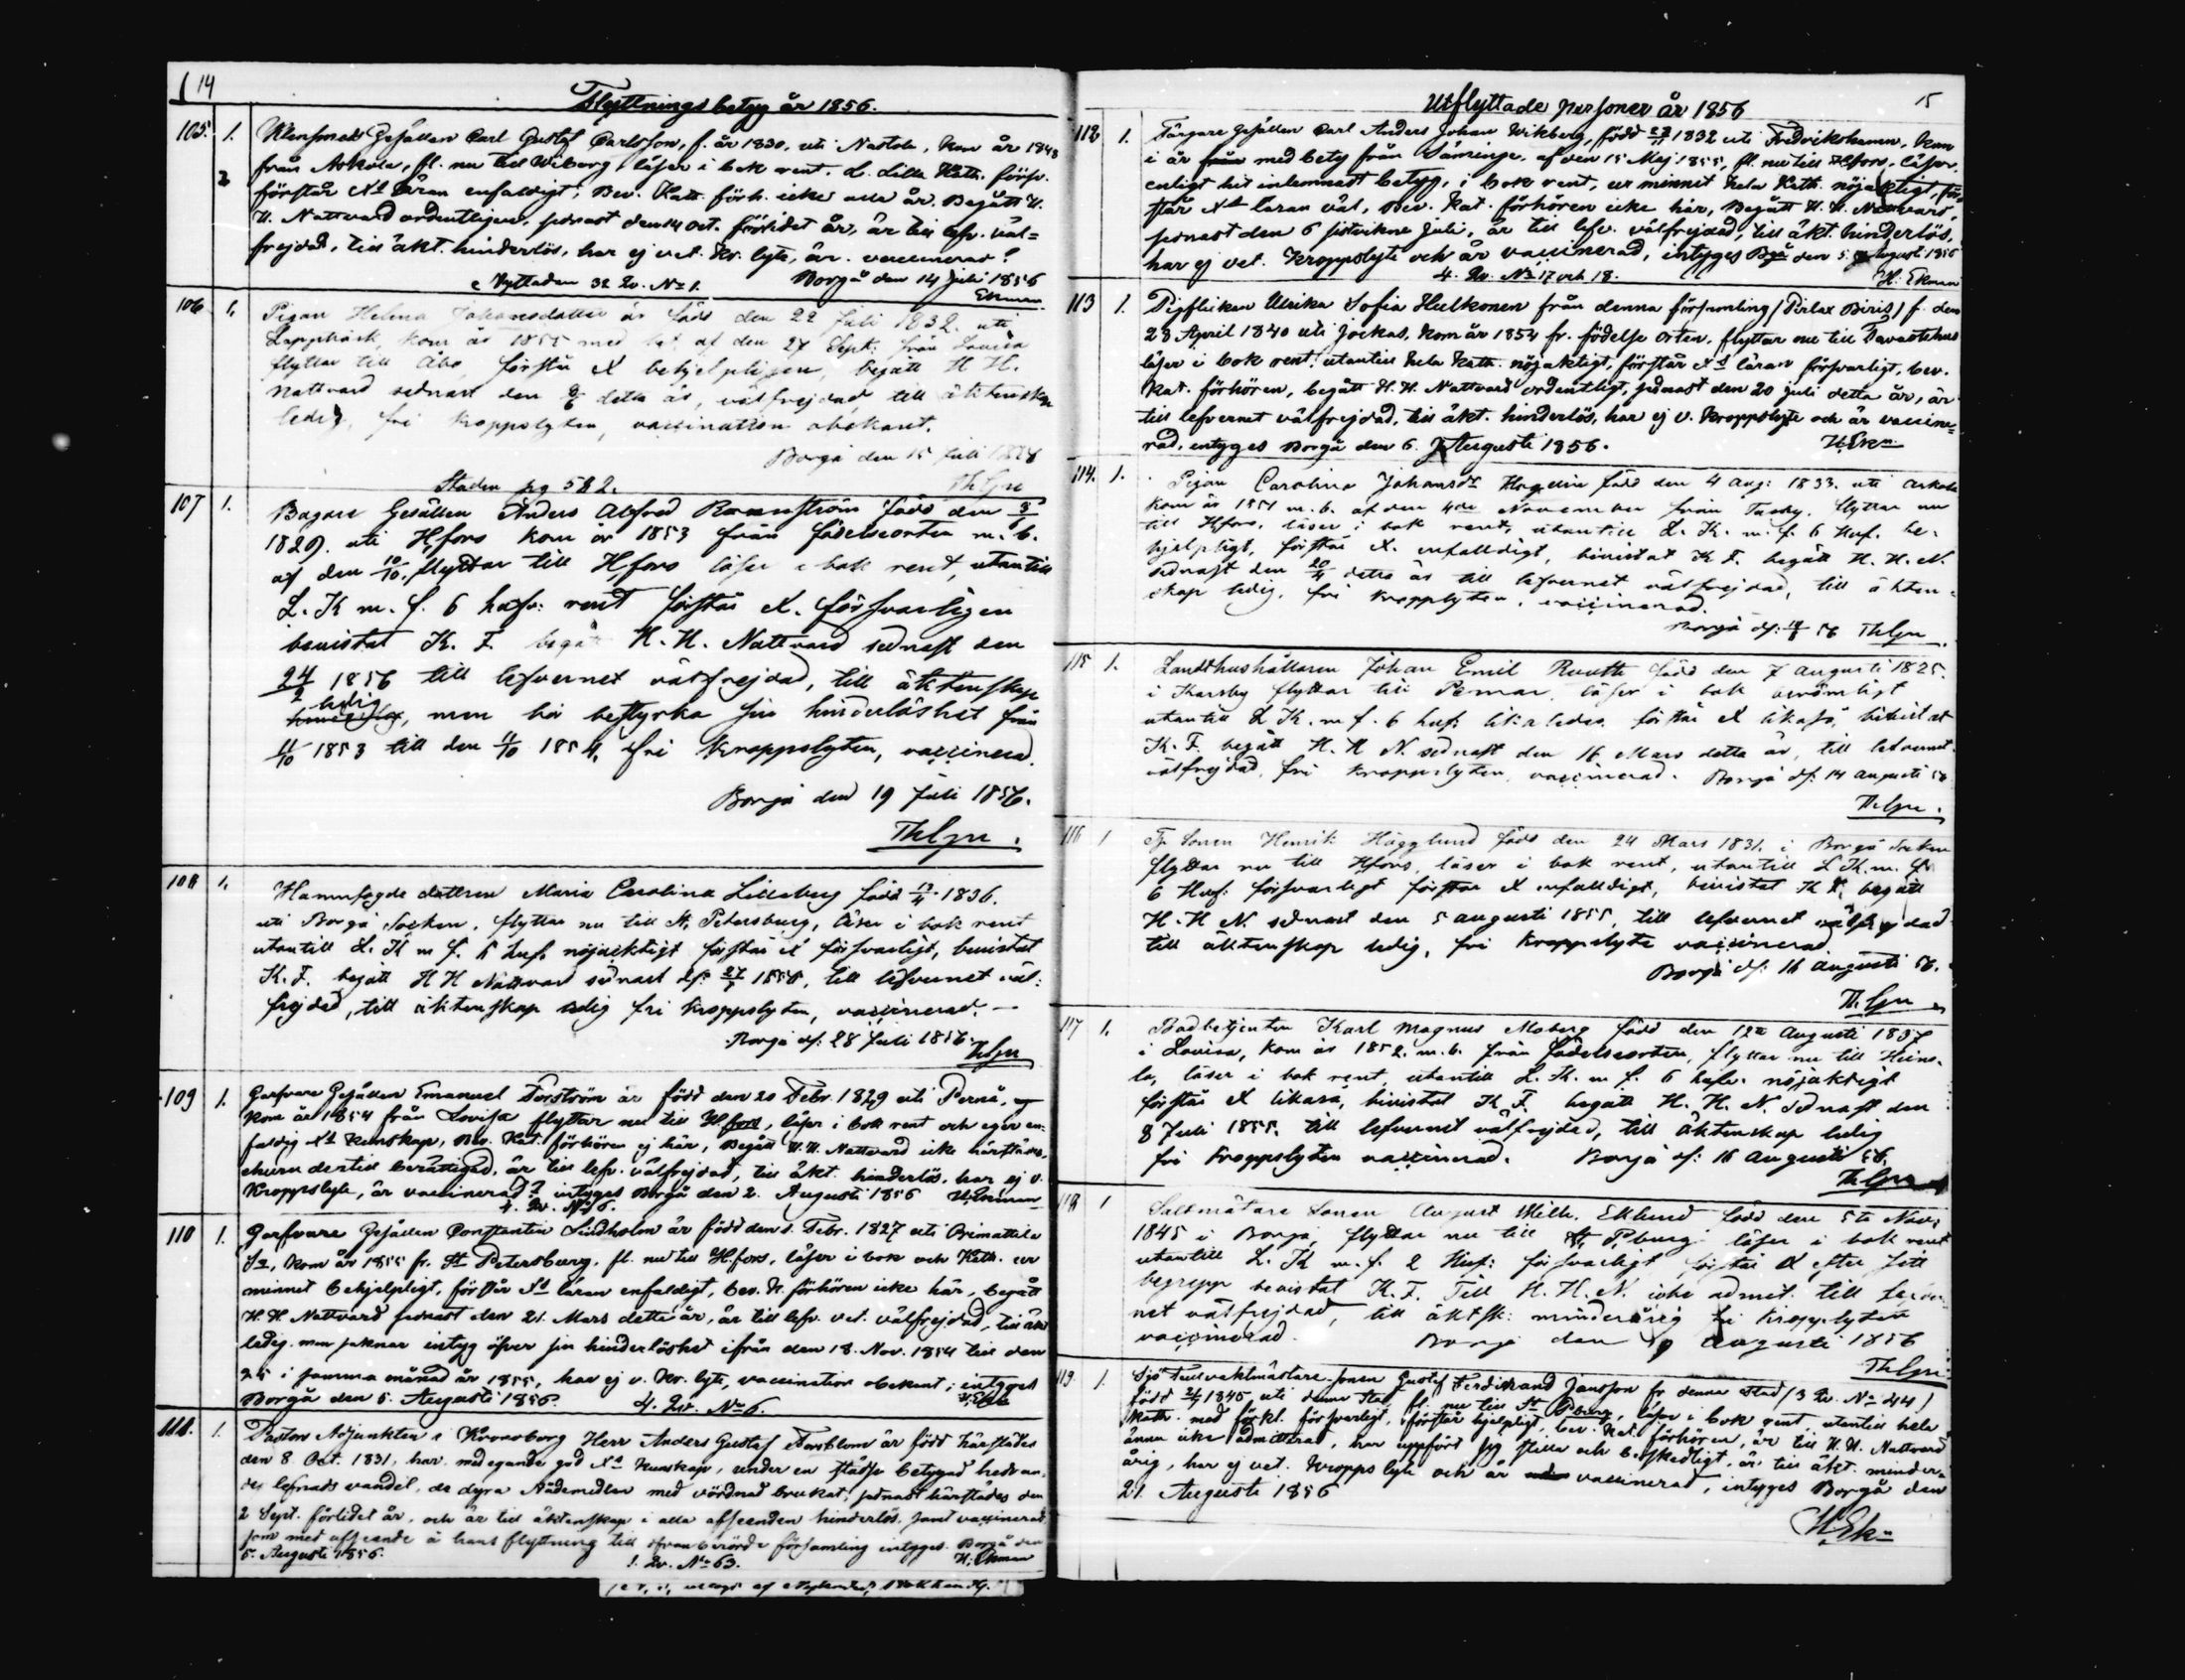 14
Flyttningsbetyg år 1856.
105. 1. Gesällen Carl Gustaf Carlsson, f. år 1830, uti Nastola, kom år 1848
2 från Askola, fl. nu till Wiborg, läser i bok rent. d. lilla Kath. förso.
förstår Xd läran enfaldigt; Bev. Kath. förh. icke alla år. Begått H.
H. Nattvard ordentligen, sednast den 14 Oct. förlidet år, är till lefv. väl=
frejdad, till äkt. hinderlös, har ej vet. kr. lyte, är vaccinerad?
Nystaden 32 Qv. No 1. Borgå den 14 Juli 1856
Ekman
106 1. Pigan Helena Johansdotter är född den 22 Juli 1832 uti
Lappträsk, kom år 1855 med bet. af den 27 Sept. från Lovisa
flyttar till Åbo, förstår X behjelpligen, begått H H.
Nattvard sednast den detta år, välfrejdad till äktenskap
ledig, fri kroppslyten, vaccination obekant.
Borgå den 15 Juli
Staden pg 582. ThGpn
107 1. Bagare Gesällen Anders Alfred född den
1829. uti H,fors kom år 1853 från födelseorten m. b.
af den 10/10. flyttar till H,fors läser i bok rent, utantill
L. K m. f. 6 hufv: rent förstår X. försvarligen
bevistat K. F. begå H. H. Nattvard sednast den
24/2 1856 till lefvernet välfrejdad, till äktenskap
ledig
, men bör bestyrka sin hinderlöshet från
11/10 1853 till den 11/10 1854, fri kroppslyten, vaccinerad.
Borgå den 19 Juli 1856.
ThGpn.
108 1. Hamnfogde dottren Maria Carolina Lilleberg född 1836.
uti Borgå Socken, flyttar nu till St Petersburg, läser i bok rent
utantill L. K m f. 6 huf. nöjacktigt förstår X försvarligt, bevistat
K. F. begått H H Nattvard sednast d: 27 till lefvernet väl:
frejdad, till äktenskap ledig fri kroppslyten, vaccinerad. —
Borgå d: 28 Juli 1856.
ThGpn
109 1. Garfvare Gesällen Emanuel Forström är född den 20 Febr. 1829 uti Pernå,
kom år 1854 från Lovisa flyttar nu till H.fors, läser i bok rent och eger en-
faldig Xd kunskap, Bev. Kat. förhören ej här, Begått H.H. Nattvard icke härstädes,
ehuru dertill berättigad, är till lefv. välfrejdad, till äkt. hinderlös, har ej v.
kroppslyte, är vaccinerad? intyges Borgå den 2. Augusti 1856 H. Ekman
4. Qv. No 6.
110 1. Garfvare Gesällen Constantin Lindholm är född den 1. Febr. 1827 uti Orimattila
Sn, kom år 1855 fr. St Petersburg, fl. nu till H.fors, läser i bok och Kath. ur
minnet behjelpligt, förstår Xd läran enfaldigt, bev. K. förhören icke här, begått
H. H. Nattvard sednast den 21. Mars detta år, är till lefv. vet. välfrejdad, till äkt
ledig, men saknar intyg öfver sin hinderlöshet ifrån den 18. Nov. 1854 till den
25 i samma månad år 1855, har ej v. kr. lyte, vaccination obekant; intyges
Borgå den 5. Augusti 1856. 4. Qv. No 6.
111. 1. Pastors Adjunkten i Kronoborg Herr Anders Gustaf Forsblom är född härstädes
den 8 Oct. 1831, har med egande god Xd kunskap, under en städse betygad hedran-
de lefnads vandel, de dyra Nådemedlen med vördnad brukat, sednast härstädes den
2 Sept. förlidet år, och är till äktenskap i alla afseenden hinderlös, samt vaccinerad
som med afseende å hans flyttning till ofvanberörde församling intyges. Borgå den
5. Augusti 1856. 1. Qv. No 63. H. Ekman
Utflyttade personer år 1856 15
112 1. Färgare gesällen Carl Anders Johan Wikberg, född 1832 uti Fredrikshamn, kom
i år med betyg från Säminge, af den 15 Maj 1855, fl. nu till H.fors, läser,
enligt hit inlemnadt betyg, i bok rent, ur minnet hela Kath. nöjaktigt, för-
står Xd läran väl, Bev. Kat. förhören icke här, Begått H. H. Nattvard,
sednast den 6 sistvikne Juli, är till lefv. välfrejdad, till äkt. hinderlös,
har ej vet. kroppslyte och är vaccinerad, intyges Bgå den 5. Augusti 1856
4. Qv. No 17 och 18. H. Ekman
113 1. Pigflickan Ulrika Sofia Hulkonen från denna församling (Pirlax Biris) f. den
28 April 1840 uti Jockas, kom år 1854 fr. födelse orten, flyttar nu till Tavastehus
läser i bok rent, utantill hela Kath. nöjaktigt, förstår Xd läran försvarligt, bev.
Kat. förhören, begått H. H. Nattvard ordentligt, sednast den 20 Juli detta år, är
till lefvernet välfrejdad, till äkt. hinderlös, har ej v. kroppslyte och är vaccine=
rad, intyges Borgå den 6. Augusti 1856. H. Ekn
114. 1. Pigan Carolina Johansdr född den 4 Aug: 1833. uti Askola
kom år 1851 m. b. af den 4de November från Tusby, flyttar nu
till H,fors, läser i bok rent, utantill L. K. m. f. 6 Huf. be-
hjelpligt, förstår X. enfalldigt, bevistat K F. begått H. H. N.
sednast den 20/4 detta år till lefvernet välfrejdad, till äkten=
skap ledig, fri kroppslyten, vaccinerad.
Borgå d: 56 ThGpn
115 1. Landthushållaren Johan Emil Ruuth född den 7 Augusti 1825.
i Karsby flyttar till Pernå, läser i bok berömligt
utantill L K. m f. 6 huf: likaledes förstår X likaså, bevistat
K. F. begått H. H N. sednast den 16 Mars detta år, till lefvernet
välfrejdad, fri kroppslyten, vaccinerad. Borgå d: 14 Augusti 56
ThGpn.
116 1 Sonen Henrik Hägglund född den 24 Mars 1831. i Borgå Socken
flyttar nu till H,fors, läser i bok rent, utantill L K. m. f.
6 Huf: försvarligt förstår X enfalldigt, bevistat K F, begått
H. H N. sednast den 5 Augusti 1855, till lefvernet välfrejdad
till äktenskap ledig, fri kroppslyte vaccinerad
Borgå d: 16 Augusti 56.
ThGpn
117 1. Badbetjenten Karl Magnus Moberg född den 12te Augusti 1837
i Lovisa, kom år 1852. m. b. från födelseorten, flyttar nu till Heino-
la, läser i bok rent, utantill L. K. m f. 6 hufv. nöjaktigt
förstår X likaså, bevistat K F. begått H. H. N. sednast den
8 Juli 1855. till lefvernet välfrejdad, till äktenskap ledig
fri kroppslyten vaccinerad. Borgå d: 16 Augusti 56.
ThGpn
118 1 Saltmätare Sonen August Wilh. Eklund född den 5te Nov:
1845 i Borgå, flyttar nu till St P,burg läser i bok rent
utantill L. K m. f. 2 Huf: försvarligt, förstår X efter sitt
begrepp bevistat K. F. Till H. H. N. icke admit. till lefver-
net välfrejdad, till äktsk: minderårig fri kroppslyten
vaccinerad. Borgå den 19 Augusti 1856
ThGpn
119. 1. Sjö Tullvaktmästare Sonen Gustaf Ferdinand Jansson fr. denna Stad (3 Qv. No 44)
född 1845 uti denna Stad, fl. nu till St P.burg, läser i bok rent utantill hela
Kath. med förkl. försvarligt, förstår hjelpligt, bev. Kat. förhören, är till H. H. Nattvard
ännu icke admitterad, har uppfört sig stilla och beskedligt, är till äkt. minder=
årig, har ej vet. kroppslyte och är vaccinerad, intyges Borgå den
21. Augusti 1856
H. Ekn